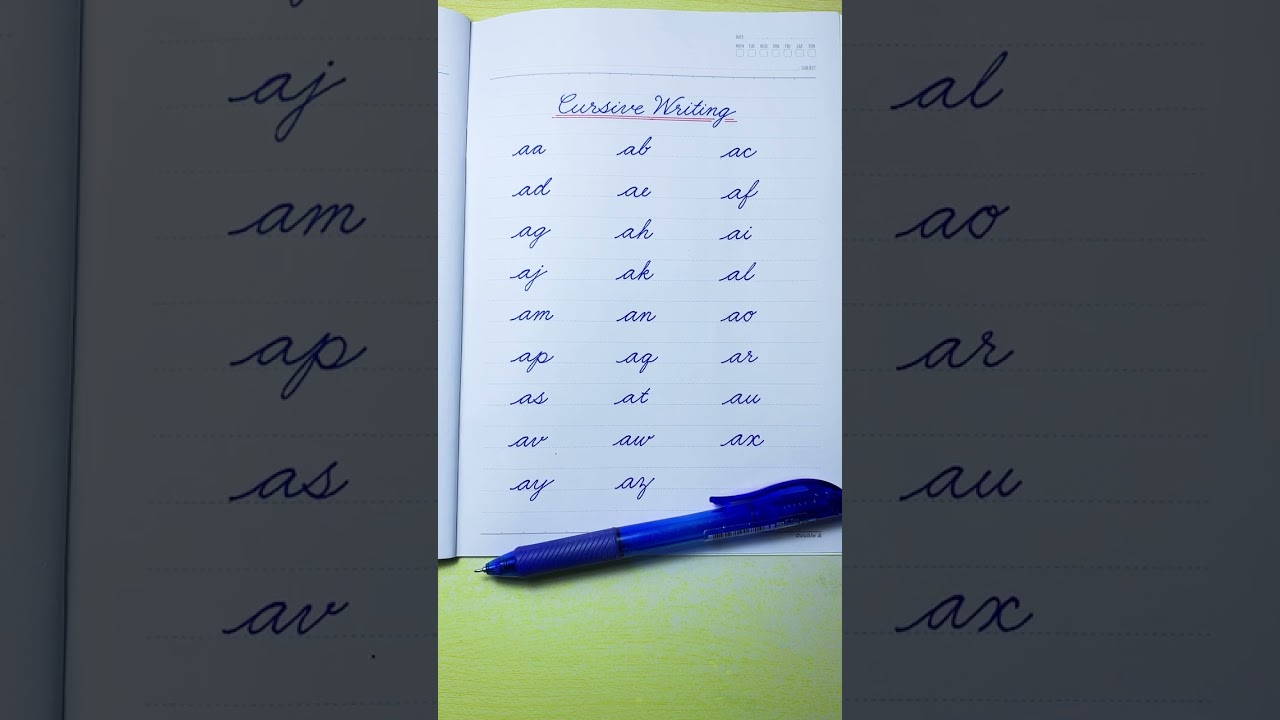 aj
am
ap
as
av
DATE
MON TUE WED THU FRI SAT SUN
SUBJECT
Cursive Writing
aa ab ac
ad ae af
ag ah ai
aj ak al
am an ao
ap aq ar
as at au
av aw ax
ay az
Double A
al
ao
ar
au
ax